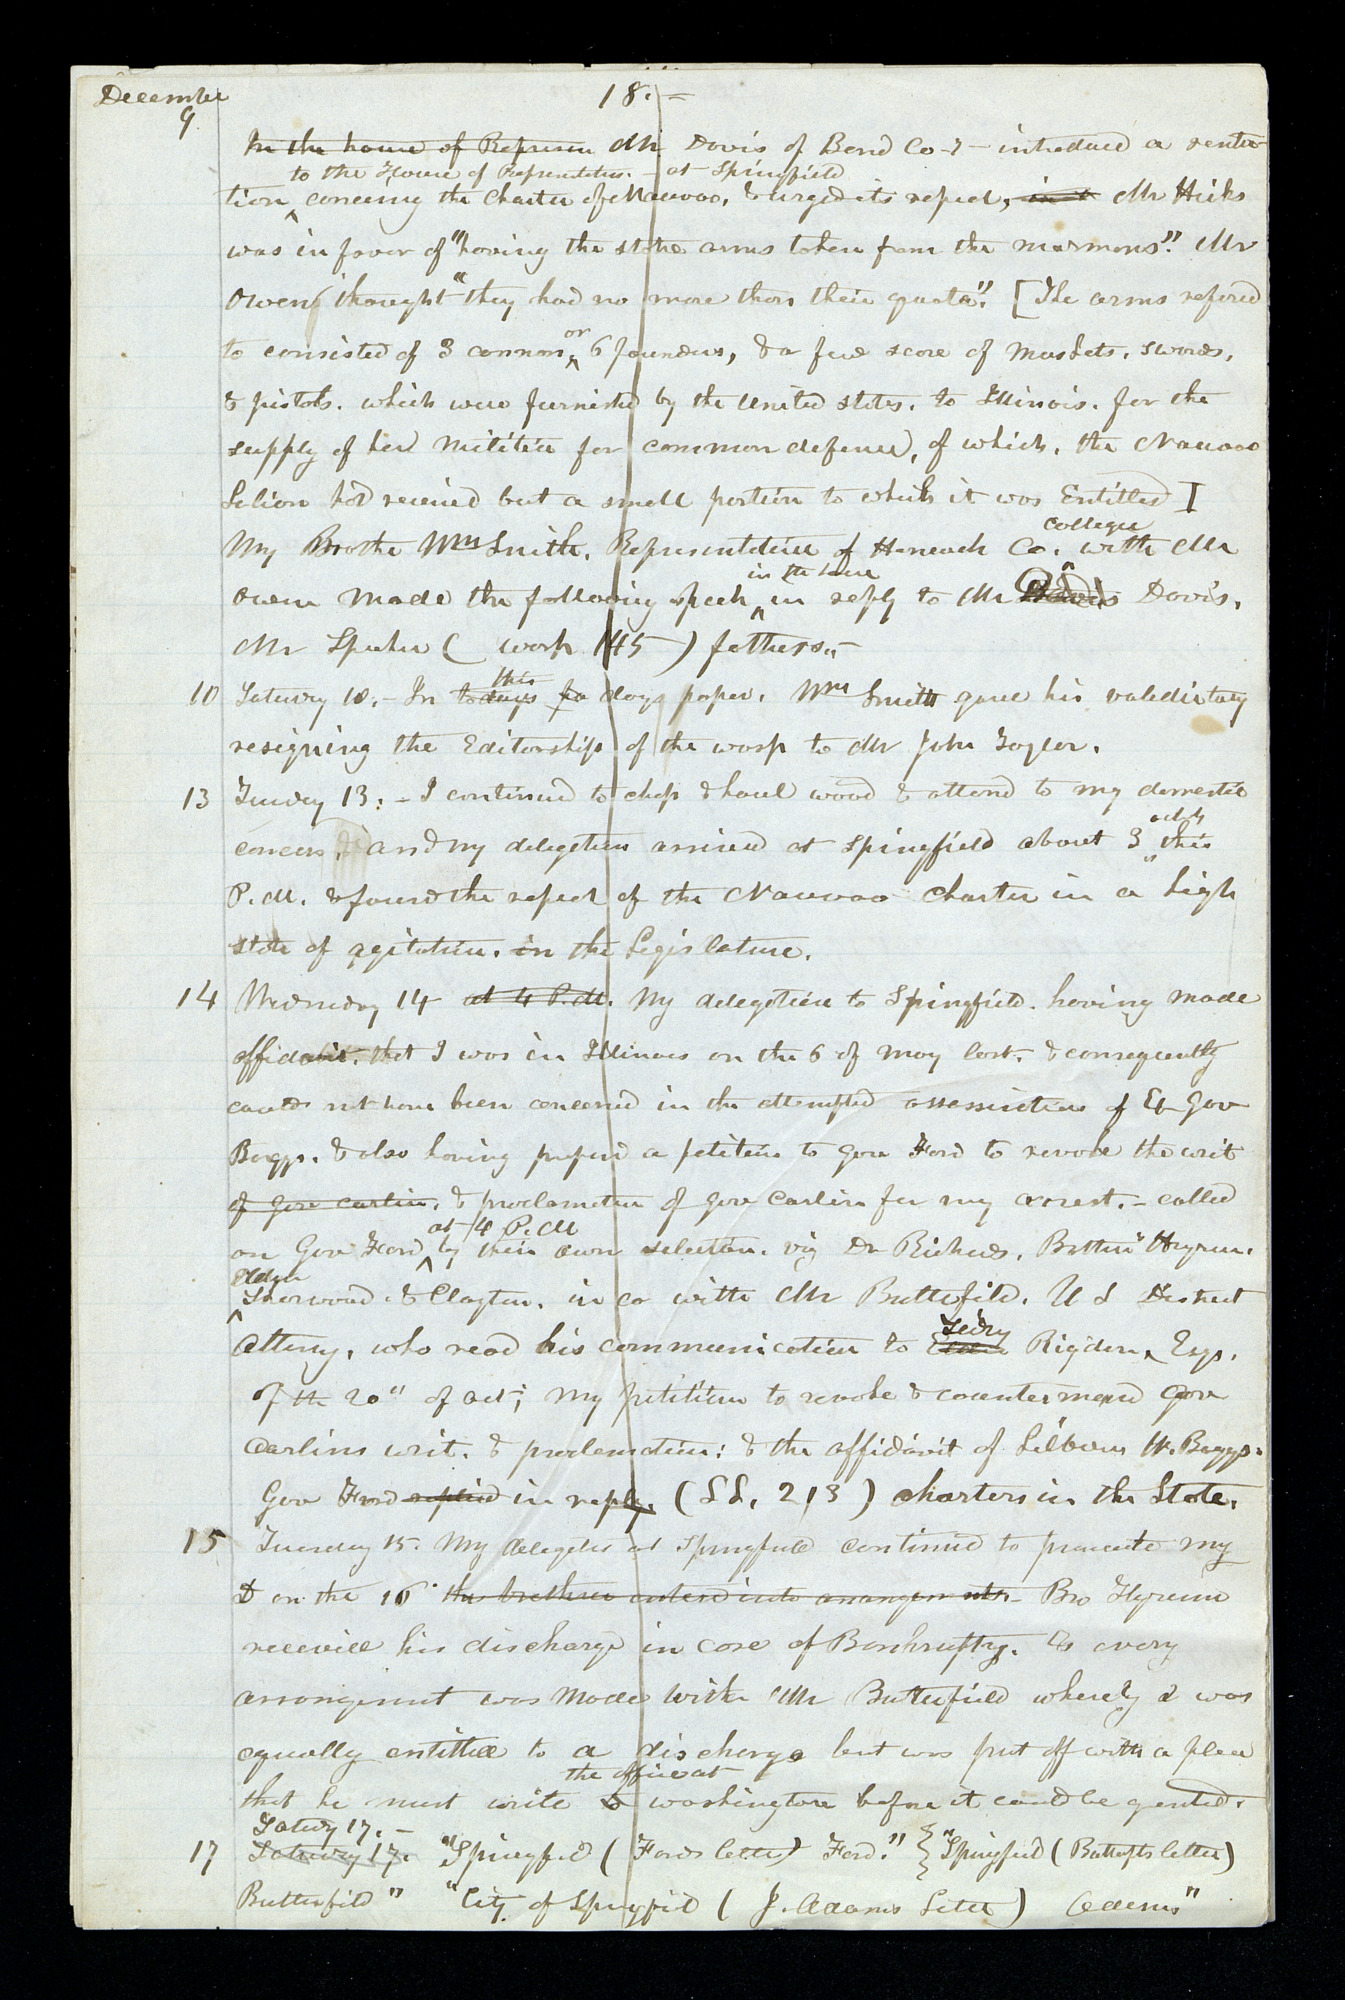 December 18.—
9
In the house of Represen Mr Davis of Bond Co — introduced a
to the House of Representatives. — at Springfield
tion concerning the Charter of Nauvoo, & urged its repeal, in a Mr Hicks
was in favor of "having the state arms taken from the mormons." Mr
Owen thought "they had no more than their quota." [The arms refered
to consisted of 3 cannon, or 6 pounders, & a few score of muskets, swords,
& pistols. which were furnished by the United states. to Illinois. for the
supply of her militia for common defence, of which, the Nauvoo
Legion had received but a small portion to which it was Entitled ]
collegue
My Brother Wm Smith. Representative of Hancock Co. with Mr
in the house
Owen made the following speech in reply to Mr Davis Davis.
Mr Speaker ( wasp 145 ) fathers."—
10 Saturday 10. — In todays pa this days paper. Wm Smith gave his valedictory
resigning the Editorship of the wasp to Mr John Taylor.
13 Tuesday 13: — I continued to chop & haul wood & attend to my domestic
concerns, and my delegation arrived at Springfield about 3 oclock this
P.M. & found the repeal of the Nauvoo Charter in a high
state of agitation. in the Legislature.
14 Wednesday 14 at 4 P.M. My delegation to Springfield. having made
affidavit. that I was in Illinois on the 6 of may last. & consequently
could not have been concerned in the attempted assassination of Ex Gov
Boggs. & also having prepared a petition to Gov Ford to revoke the writ
of Gov carlin. & proclamation of Gov Carlin for my arrest. — called
at 4 P.M
on Gov Ford by their own selection. viz Dr Richards, Bretheren Hyrum.
Elder
Sherwood & Clayton. in co with Mr Butterfield. U S District
Attorney, who read his communication to Elder Sidney Rigdon, Esq.
of the 20" of oct; My petition to revoke & countermand Gov
Carlins writ. & proclamation: & the affidavit of Lilburn W. Boggs.
Gov Ford replied in reply. (L L, 213 ) charters in the State.
15 Thursday 15. My delegates at Springfield continued to prosecute my
D on the 16" the brethren entered into arrangements — Bro Hyrum
received his discharge in case of Bankruptcy. & every
arrangement was made with Mr Butterfield whereby I was
equally entitled to a discharge but was put off with a plea
the office at
that he must write to washington before it could be granted.
Saturdy 17. —
17 Saturday 17. "Springfield ( Fords letter) Ford." } "Springfield (Butterfields letter)
Butterfield" "City of Springfield ( J. Adams Letter ) Adams"